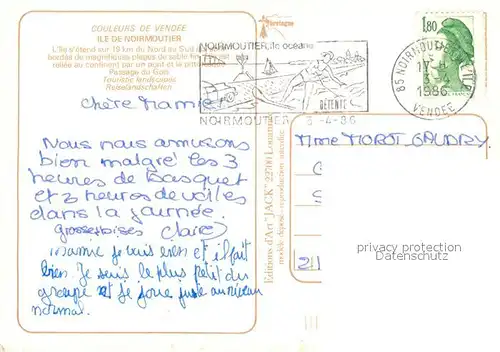 COULEURS DE VENDÉE
ILE DE NOIRMOUTIER
L'île s'étend sur 19 km du Nord au Sud
bordés de magnifiques plages de sable fin
reliée au continent par un pont et le
Passage du Gois
Touristic landscapes
Reiselandschaften
bretagne
NOIRMOUTIER, île océane
DÉTENTE
NOIRMOUTIER 3-4-86
1,80
85 NOIRMOUTIER
17 H
3-4
1986
VENDEE
Chère Mamie
Nous nous amusons
bien malgré les 3
heures de Basquet
et 2 heures de voiles
dans la journée.
Grosses bises Claire
mamie je vais bien et il fait
bien. Je suis le plus petit du
groupe et je joue juste au niveau
normal.
Editions d'Art "JACK" 22700 Louannec
modèle déposé - reproduction interdite
Mme MOROT-GAUDRY
21
privacy protection
Datenschutz